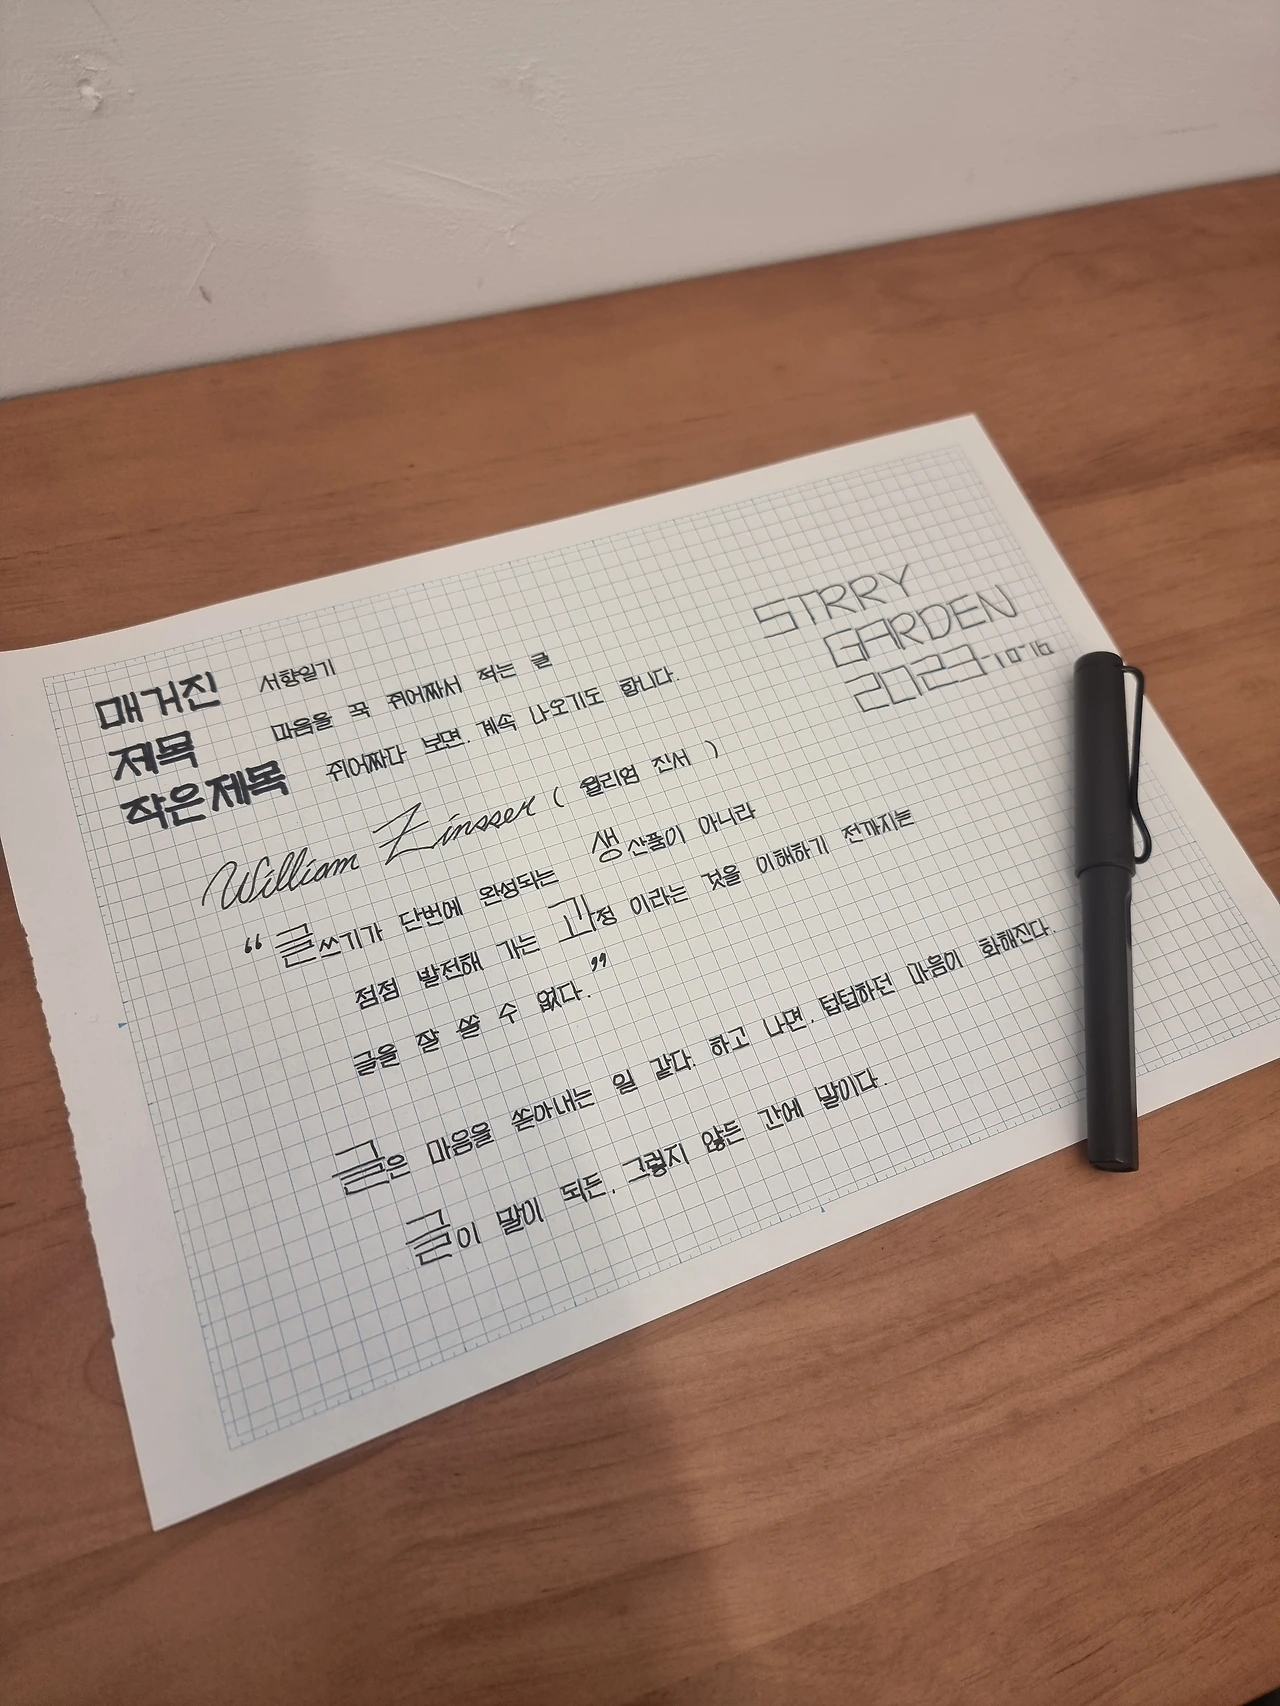 매거진 서향일기
제목 마음을 꾹 쥐어짜서 적는 글
작은제목 쥐어짜다 보면, 계속 나오기도 합니다.
STRRY
GARDEN
2023-10-16
William Zinsser ( 윌리엄 진서 )
“ 글쓰기가 단번에 완성되는 생산품이 아니라
점점 발전해 가는 과정 이라는 것을 이해하기 전까지는
글을 잘 쓸 수 없다. ”
글은 마음을 쏟아내는 일 같다. 하고 나면, 텁텁하던 마음이 화해진다.
글이 말이 되든, 그렇지 않든 간에 말이다.